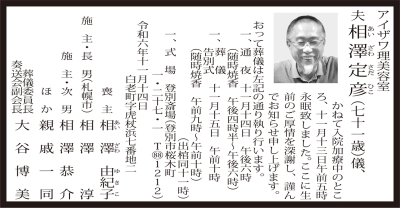 アイザワ理美容室
夫 相澤定彦(七十一歳)儀、
あいざわ さだひこ
かねて入院加療中のところ、
十一月十三日午前五時
永眠致しました。ここに生
前のご厚情を深謝し、謹ん
でお知らせ申し上げます。
おって葬儀は左記の通り執り行います。
一、通夜 十一月十四日 午後六時
(随時焼香 午後四時半~午後六時)
一、葬儀 告別式 十一月十五日 午前十時
(随時焼香 午前九時~午前十時)
(出棺十一時)
一、式場 登別斎場(登別市桜木町
一・二七・一 T88 1212)
令和六年十一月十四日
白老町字虎杖浜七番地二
喪主 相澤由紀子
あいざわ ゆきこ
施主・長男(札幌市) 相澤淳
施主・次男 相澤恭介
ほか 親戚一同
葬儀委員長
奏送会副会長 大谷博美